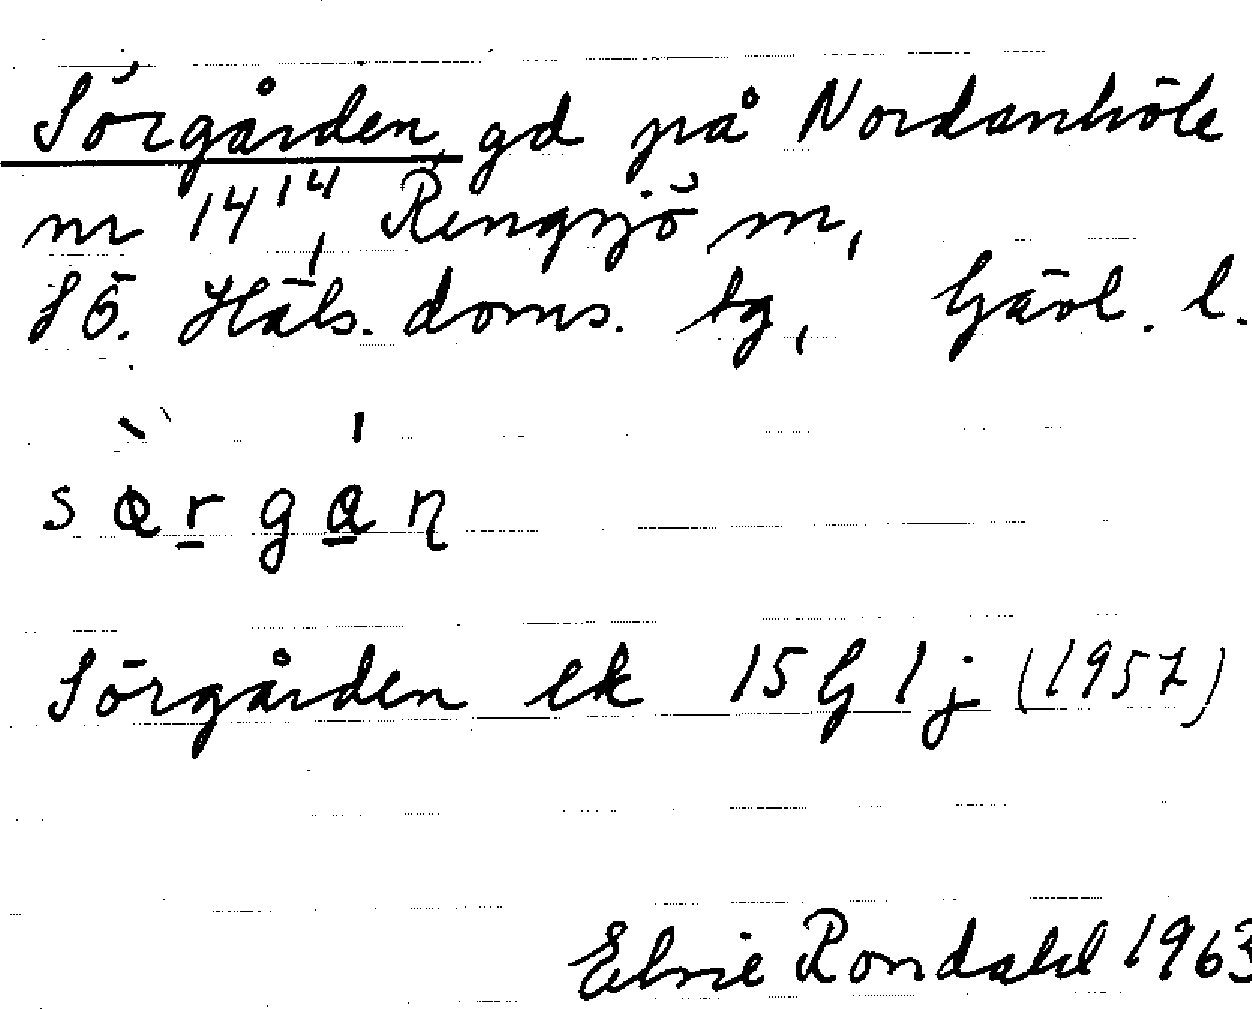 Sörgården, gd på Nordanhöle
nr 14¹⁴, Rengsjö sn,
SÖ. Häls. doms. tg, Gävl. l.
sə̀rgán̨
Sörgården ek 15 G 1 j (1957)
Elvie Rondahl 1963